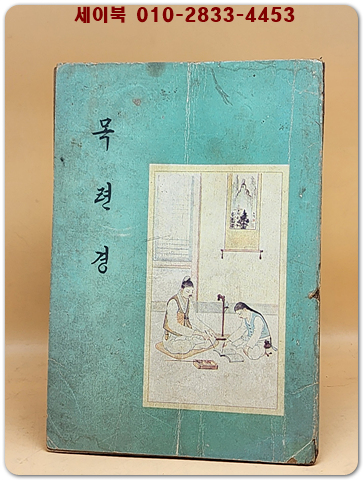 세이북 010-2833-4453
목련경